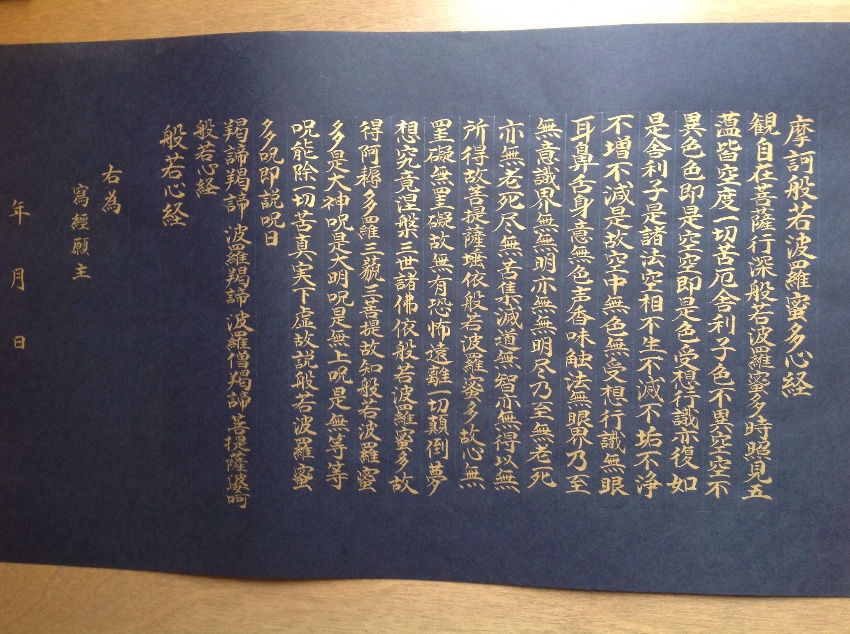 摩訶般若波羅蜜多心経
観自在菩薩行深般若波羅蜜多時照見五
薀皆空度一切苦厄舎利子色不異空空不
異色色即是空空即是色受想行識亦復如
是舎利子是諸法空相不生不滅不垢不浄
不増不減是故空中無色無受想行識無眼
耳鼻舌身意無色声香味触法無眼界乃至
無意識界無無明亦無無明尽乃至無老死
亦無老死尽無苦集滅道無智亦無得以無
所得故菩提薩埵依般若波羅蜜多故心無
罣礙無罣礙故無有恐怖遠離一切顛倒夢
想究竟涅槃三世諸佛依般若波羅蜜多故
得阿耨多羅三藐三菩提故知般若波羅蜜
多是大神呪是大明呪是無上呪是無等等
呪能除一切苦真実不虚故説般若波羅蜜
多呪即説呪曰
羯諦羯諦 波羅羯諦 波羅僧羯諦 菩提薩婆呵
般若心経
般若心経
右為
寫經願主
年 月 日